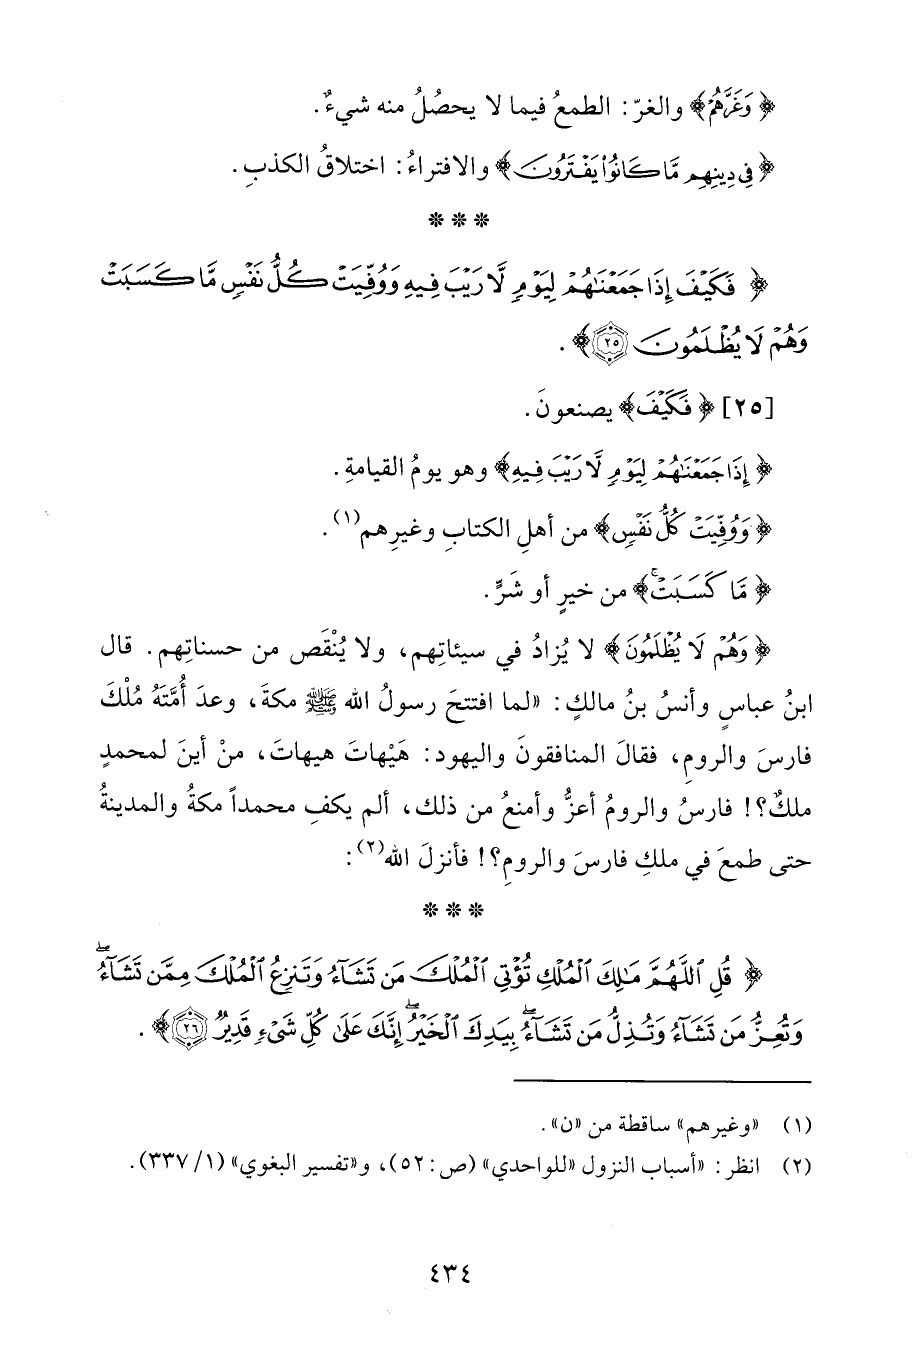 ﴿وَغَرَّهُمْ﴾ والغرّ: الطمعُ فيما لا يحصُلُ منه شيءٌ.
﴿فِي دِينِهِم مَّا كَانُوا۟ يَفْتَرُونَ﴾ والافتراءُ: اختلاقُ الكذبِ.
* * *
﴿فَكَيْفَ إِذَا جَمَعْنَٰهُمْ لِيَوْمٍ لَّا رَيْبَ فِيهِ وَوُفِّيَتْ كُلُّ نَفْسٍ مَّا كَسَبَتْ
وَهُمْ لَا يُظْلَمُونَ ٢٥﴾.
[٢٥] ﴿فَكَيْفَ﴾ يصنعونَ.
﴿إِذَا جَمَعْنَٰهُمْ لِيَوْمٍ لَّا رَيْبَ فِيهِ﴾ وهو يومُ القيامةِ.
﴿وَوُفِّيَتْ كُلُّ نَفْسٍ﴾ من أهلِ الكتابِ وغيرِهم(١).
﴿مَّا كَسَبَتْ﴾ من خيرٍ أو شَرٍّ.
﴿وَهُمْ لَا يُظْلَمُونَ﴾ لا يُزادُ في سيئاتِهم، ولا يُنْقَص من حسناتِهم. قال
ابنُ عباسٍ وأنسُ بنُ مالكٍ: «لما افتتحَ رسولُ الله ﷺ مكةَ، وعدَ أُمَّتَهُ مُلْكَ
فارسَ والرومِ، فقالَ المنافقونَ واليهود: هَيْهاتَ هيهاتَ، منْ أينَ لمحمدٍ
ملكٌ؟! فارسُ والرومُ أعزُّ وأمنعُ من ذلك، ألم يكفِ محمداً مكةُ والمدينةُ
حتى طمعَ في ملكِ فارسَ والرومِ؟! فأنزلَ الله(٢):
* * *
﴿قُلِ ٱللَّهُمَّ مَٰلِكَ ٱلْمُلْكِ تُؤْتِى ٱلْمُلْكَ مَن تَشَآءُ وَتَنزِعُ ٱلْمُلْكَ مِمَّن تَشَآءُ ۖ
وَتُعِزُّ مَن تَشَآءُ وَتُذِلُّ مَن تَشَآءُ ۖ بِيَدِكَ ٱلْخَيْرُ ۖ إِنَّكَ عَلَىٰ كُلِّ شَىْءٍ قَدِيرٌ ٢٦﴾.
(١) «وغيرهم» ساقطة من «ن».
(٢) انظر: «أسباب النزول «للواحدي» (ص: ٥٢)، و«تفسير البغوي» (١/ ٣٣٧).
٤٣٤